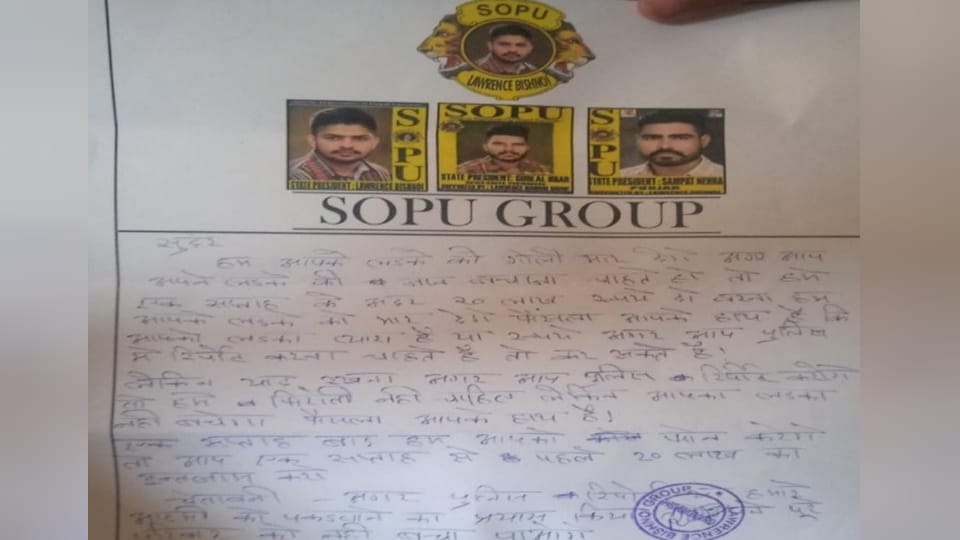 SOPU
LAWRENCE BISHNOI
SOPU
STATE PRESIDENT : LAWRENCE BISHNOI
SOPU
STATE PRESIDENT :
SOPU
STATE PRESIDENT : SAMPAT NEHRA
PUNJAB
SOPU GROUP
सुन्दर
हम आपके लडके को गोली मार देगे अगर आप
अपने लडके की जान बचाना चाहते हो तो हमे
एक सप्ताह के अंदर २० लाख रूपये दो वरना हम
आपके लडके को मार देगे फैसला आपके हाथ है कि
आपको लडका प्यारा है या रूपये अगर आप पुलिस
मे रिपोर्ट करना चाहते है तो कर सकते है।
लेकिन याद रखना अगर आप पुलिस रिपोर्ट करोगे
तो हमे फिरोती नही चाहिए लेकिन आपका लडका
नही बचेगा फैसला आपके हाथ है।
एक सप्ताह बाद हम आपको फोन करेगे
तो आप एक सप्ताह से पहले २० लाख का
इन्तजाम करो
चेतावनी - अगर पुलिस हमारे
आदमी को पकडवाने का प्रयास किया पूरे
परिवार को नही बचा पाओगे
LAWRENCE BISHNOI GROUP